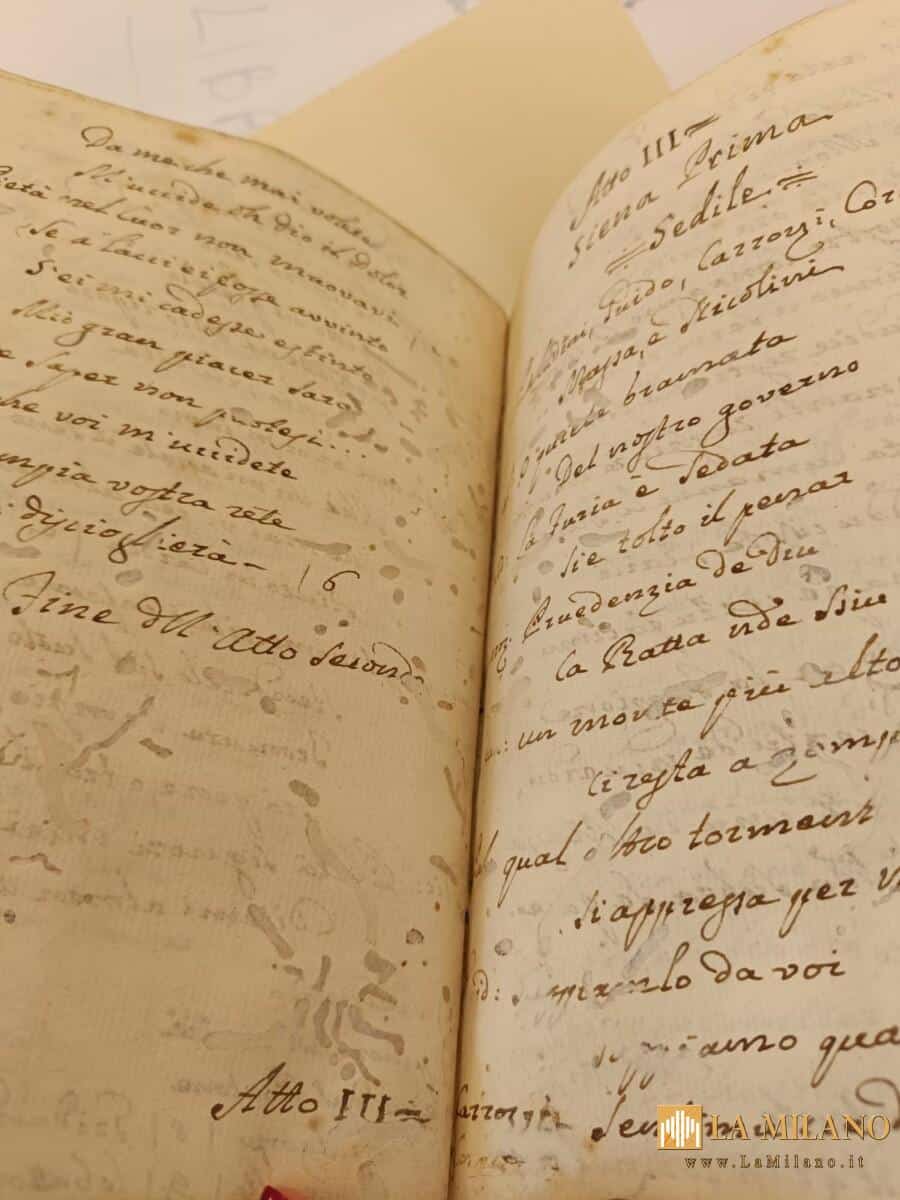 Da me che mai volete
M'uccide oh dio il dolor
Pietà nel cuor non
Se a' lacci ei fosse avvinto
S'ei mi cadesse estinto
Mio gran piacer sarà
saper non potessi...
che voi m'uccidete
empia vostra rete
discioglierà - 16
Fine dell'Atto Second
Atto III =
Atto III =
Siena Prima
= Sedile =
Guido, Carrozzi, Cor
Massa, e Nicolini
bramata
Del nostro governo
la furia è sedata
Sie tolto il pensar
Pruedenzia de Diu
la Ratta
un monte più alto
ci resta a
qual altro torment
s'appressa per v
da voi
sappiamo qua
LA MILANO
www.LaMilano.it